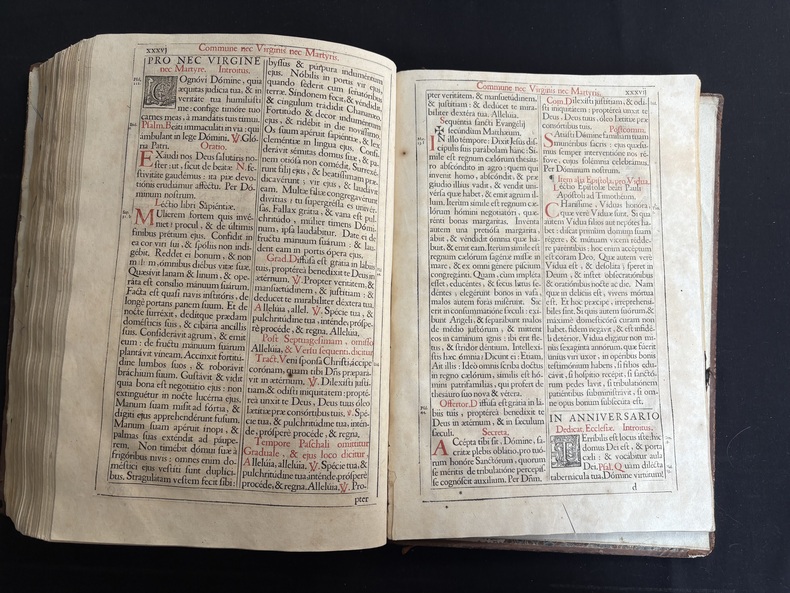 XXXVJ
Commune nec Virginis nec Martyris.
PRO NEC VIRGINE
nec Martyre. Introitus.
COgnóvi Dómine, quia
æquitas judícia tua, & in
veritáte tua humiliásti
me: confíge timóre tuo
carnes meas, à mandátis tuis tímui.
Psalm. Beáti immaculáti in via: qui
ámbulant in lege Dómini. ℣. Gló-
ria Patri.
Oratio.
EXáudi nos Deus salutáris no-
ster: ut, sicut de beátæ N. fe-
stivitáte gaudémus: ita piæ devo-
tiónis erudiámur afféctu. Per Dó-
minum nostrum.
Léctio libri Sapiéntiæ.
MUlíerem fortem quis invé-
niet? procul, & de últimis
fínibus prétium ejus. Confídit in
ea cor viri sui, & spóliis non indi-
gébit. Reddet ei bonum, & non
malum, ómnibus diébus vitæ suæ.
Quæsívit lanam & linum, & ope-
ráta est consílio mánuum suárum.
Facta est quasi navis institóris, de
longè portans panem suum. Et de
nocte surréxit, dedítque prædam
domésticis suis, & cibária ancíllis
suis. Considerávit agrum, & emit
eum: de fructu mánuum suárum
plantávit víneam. Accínxit fortitú-
dine lumbos suos, & roborávit
bráchium suum. Gustávit & vidit
quia bona est negotiátio ejus: non
extinguétur in nocte lucérna ejus.
Manum suam misit ad fórtia, &
dígiti ejus apprehendérunt fusum.
Manum suam apéruit ínopi, &
palmas suas exténdit ad páupe-
rem. Non timébit dómui suæ à
frigóribus nivis: omnes enim do-
méstici ejus vestíti sunt duplíci-
bus. Stragulátam vestem fecit sibi:
byssus & púrpura induméntum
ejus. Nóbilis in portis vir ejus,
quando séderit cum senatóribus
terræ. Síndonem fecit, & véndidit,
& cíngulum trádidit Chananæo.
Fortitúdo & decor induméntum
ejus, & ridébit in die novíssimo.
Os suum apéruit sapiéntiæ, & lex
cleméntiæ in lingua ejus. Consi-
derávit sémitas domus suæ, & pa-
nem otiósa non comédit. Surrexé-
runt fílii ejus, & beatíssimam præ-
dicavérunt: vir ejus, & laudávit
eam. Multæ fíliæ congregavérunt
divítias: tu supergréssa es univér-
sas. Fallax grátia, & vana est pul-
chritúdo, múlier timens Dómi-
num, ipsa laudábitur. Date ei de
fructu mánuum suárum: & lau-
dent eam in portis ópera ejus.
Grad. Diffúsa est grátia in lábiis
tuis, proptéreà benedíxit te Deus in
ætérnum. ℣. Propter veritátem, &
mansuetúdinem, & justítiam: &
dedúcet te mirabíliter déxtera tua.
Allelúia, allel. ℣. Spécie tua, &
pulchritúdine tua, inténde, próspe-
rè procéde, & regna. Allelúia.
Post Septuagesimam, omisso
Allelúia, & Versu sequenti, dicitur
Tract. Veni sponsa Christi, áccipe
corónam, quam tibi Dñs præpará-
vit in ætérnum. ℣. Dilexísti justí-
tiam, & odísti iniquitátem: proptér-
eà unxit te Deus, Deus tuus óleo
lætítiæ præ consórtibus tuis. ℣. Spé-
cie tua, & pulchritúdine tua, intén-
de, próspérè procéde, & regna.
Tempore Paschali omittitur
Graduale, & ejus loco dicitur,
Allelúia, allelúia. ℣. Spécie tua, &
pulchritúdine tua: inténde, próspérè
procéde, & regna. Allelúia. ℣. Pro-
pter
Commune nec Virginis nec Martyris.
XXXVIJ
pter veritátem, & mansuetúdinem,
& justítiam: & dedúcet te mira-
bíliter déxtera tua. Allelúia.
Sequéntia sancti Evangélij
✠ secúndùm Matthæum.
IN illo témpore: Dixit Jesus di-
scípulis suis parábolam hanc: Sí-
mile est regnum cælórum thesáu-
ro abscóndito in agro: quem qui
invénit homo, abscóndit, & præ
gáudio illíus vadit, & vendit uni-
vérsa quæ habet, & emit agrum il-
lum. Iterùm símile est regnum cæ-
lórum hómini negotiatóri, quæ-
rénti bonas margarítas. Invénta
autem una pretiósa margaríta,
ábiit, & véndidit ómnia quæ há-
buit, & emit eam. Iterùm símile est
regnum cælórum sagénæ missæ in
mare, & ex omni génere píscium
congregánti. Quam, cùm impléta
esset, educéntes, & secus litus se-
déntes, elegérunt bonos in vasa,
malos autem foras misérunt. Sic
erit in consummatióne sǽculi: exí-
bunt Angeli, & separábunt malos
de médio justórum, & mittent
eos in camínum ignis: ibi erit fle-
tus, & stridor déntium. Intellexí-
stis hæc ómnia? Dicunt ei: Etiam.
Ait illis: Ideò omnis scriba doctus
in regno cælórum, símilis est hó-
mini patrifamílias, qui profert de
thesáuro suo nova & vétera.
Offertor. Diffúsa est grátia in lá-
biis tuis, proptéreà benedíxit te
Deus in ætérnum, & in sǽculum
sǽculi.
Secreta.
ACcépta tibi sit, Dómine, sa-
crátæ plebis oblátio, pro tuó-
rum honóre Sanctórum, quorum
se méritis de tribulatióne percepís-
se cognóscit auxílium. Per Dñm.
Com. Dilexísti justítiam, & odí-
sti iniquitátem: proptéreà unxit te
Deus, Deus tuus, óleo lætítiæ præ
consórtibus tuis.
Postcommun.
SAtiásti Dómine famíliam tuam
munéribus sacris: ejus quǽsu-
mus semper interventióne nos ré-
fove, cujus solémnia celebrámus.
Per Dóminum nostrum.
Item alia Epistola, pro Vidua.
Léctio Epístolæ beáti Pauli
Apóstoli ad Timótheum.
CHaríssime, Víduas honóra,
quæ verè Víduæ sunt. Si qua
autem Vídua fílios aut nepótes há-
bet: discat primùm domum suam
régere, & mútuam vicem rédde-
re paréntibus: hoc enim accéptum
est coram Deo. Quæ autem verè
Vídua est, & desoláta, speret in
Deum, & instet obsecratiónibus
& oratiónibus nocte ac die. Nam
quæ in delíciis est, vivens mórtua
est. Et hoc prǽcipe, ut irreprehensí-
biles sint. Si quis autem suórum, &
máximè domesticórum curam non
habet, fidem negávit, & est infidé-
li detérior. Vídua eligátur non mi-
nùs sexagínta annórum, quæ fúerit
uníus viri uxor, in opéribus bonis
testimónium habens, si fílios edu-
cávit, si hospítio recépit, si sanctó-
rum pedes lavit, si tribulatiónem
patiéntibus subministrávit, si om-
ne opus bonum subsecúta est.
IN ANNIVERSARIO
Dedicat. Ecclesiæ. Introitus.
TErríbilis est locus iste: hic
domus Dei est, & porta
cæli: & vocábitur aula
Dei. Psal. Quàm dilécta
tabernácula tua, Dómine virtútum!
d